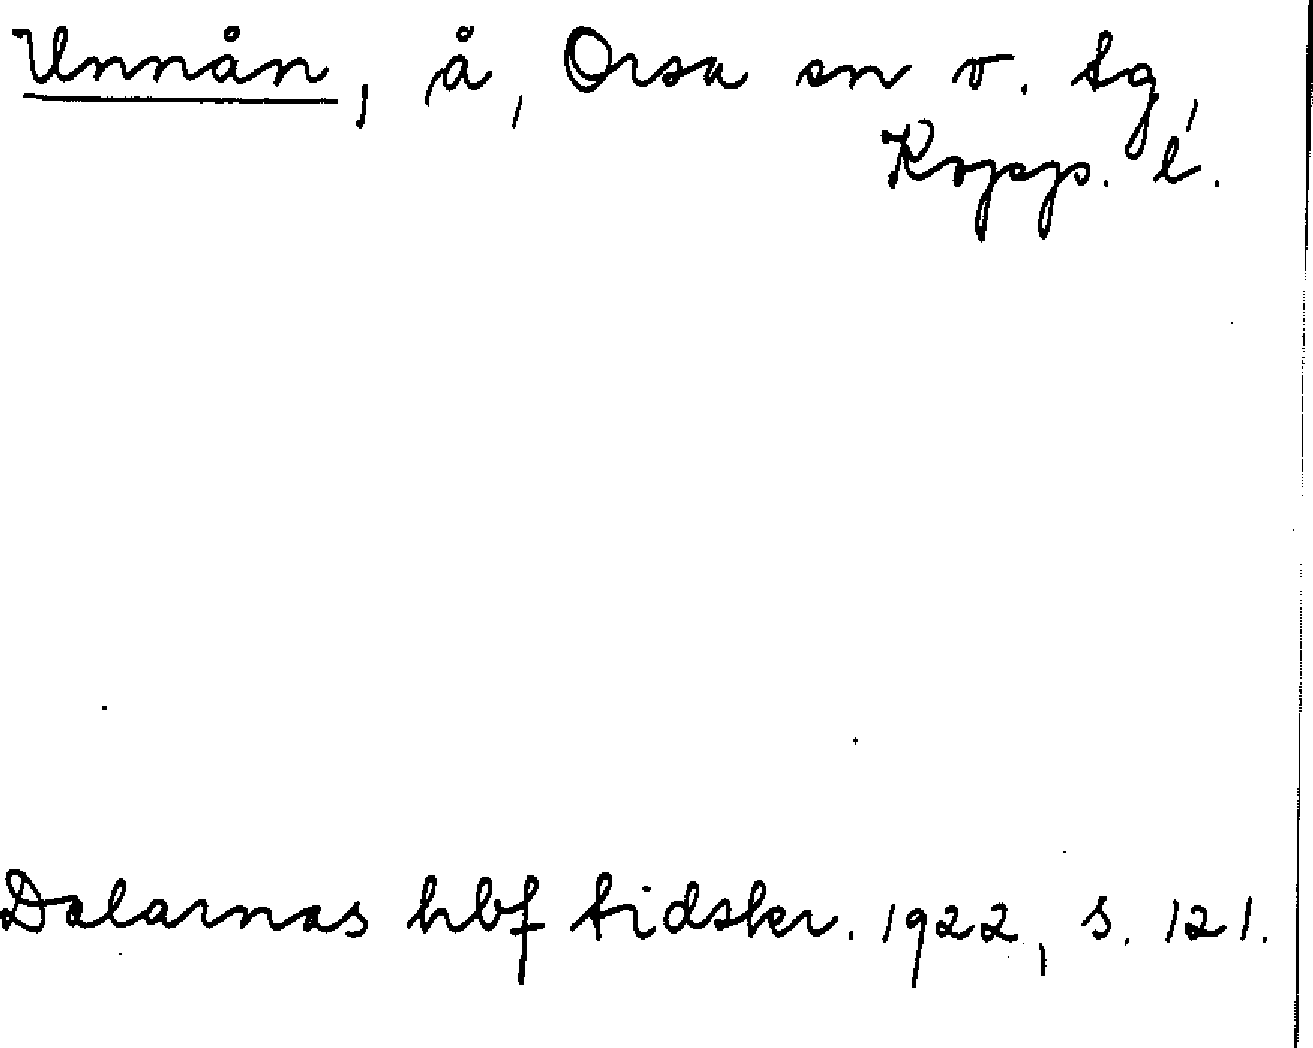 Unnån, å, Orsa sn v. tg,
Kopp. l.
Dalarnas hbf tidskr. 1922, s. 121.